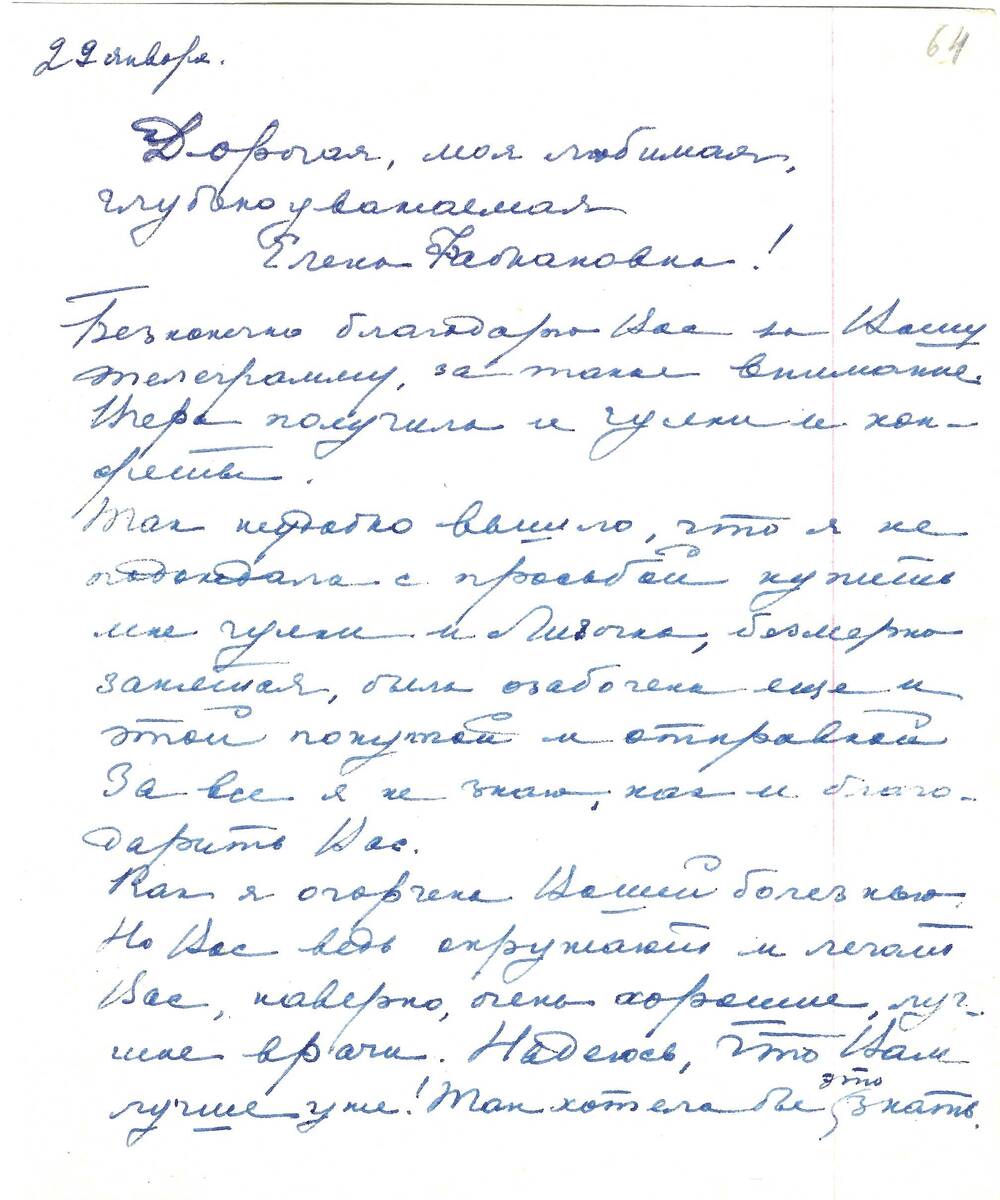 64
29 января.
Дорогая, моя любимая,
глубокоуважаемая
Елена Фабиановна!
Безконечно благодарю Вас за Вашу
телеграмму, за такое внимание.
Вчера получила и чулки и кон-
феты.
Так неудобно вышло, что я не
подождала с просьбой купить
мне чулки и Лизочка, безмерно
занятая, была озабочена еще и
этой покупкой и отправкой
За все я не знаю, как и благо-
дарить Вас.
Как я огорчена Вашей болезнью.
Но Вас ведь окружают и лечат
Вас, наверно, очень хорошие, луч-
шие врачи. Надеюсь, что Вам
лучше уже! Так хотела бы это знать.